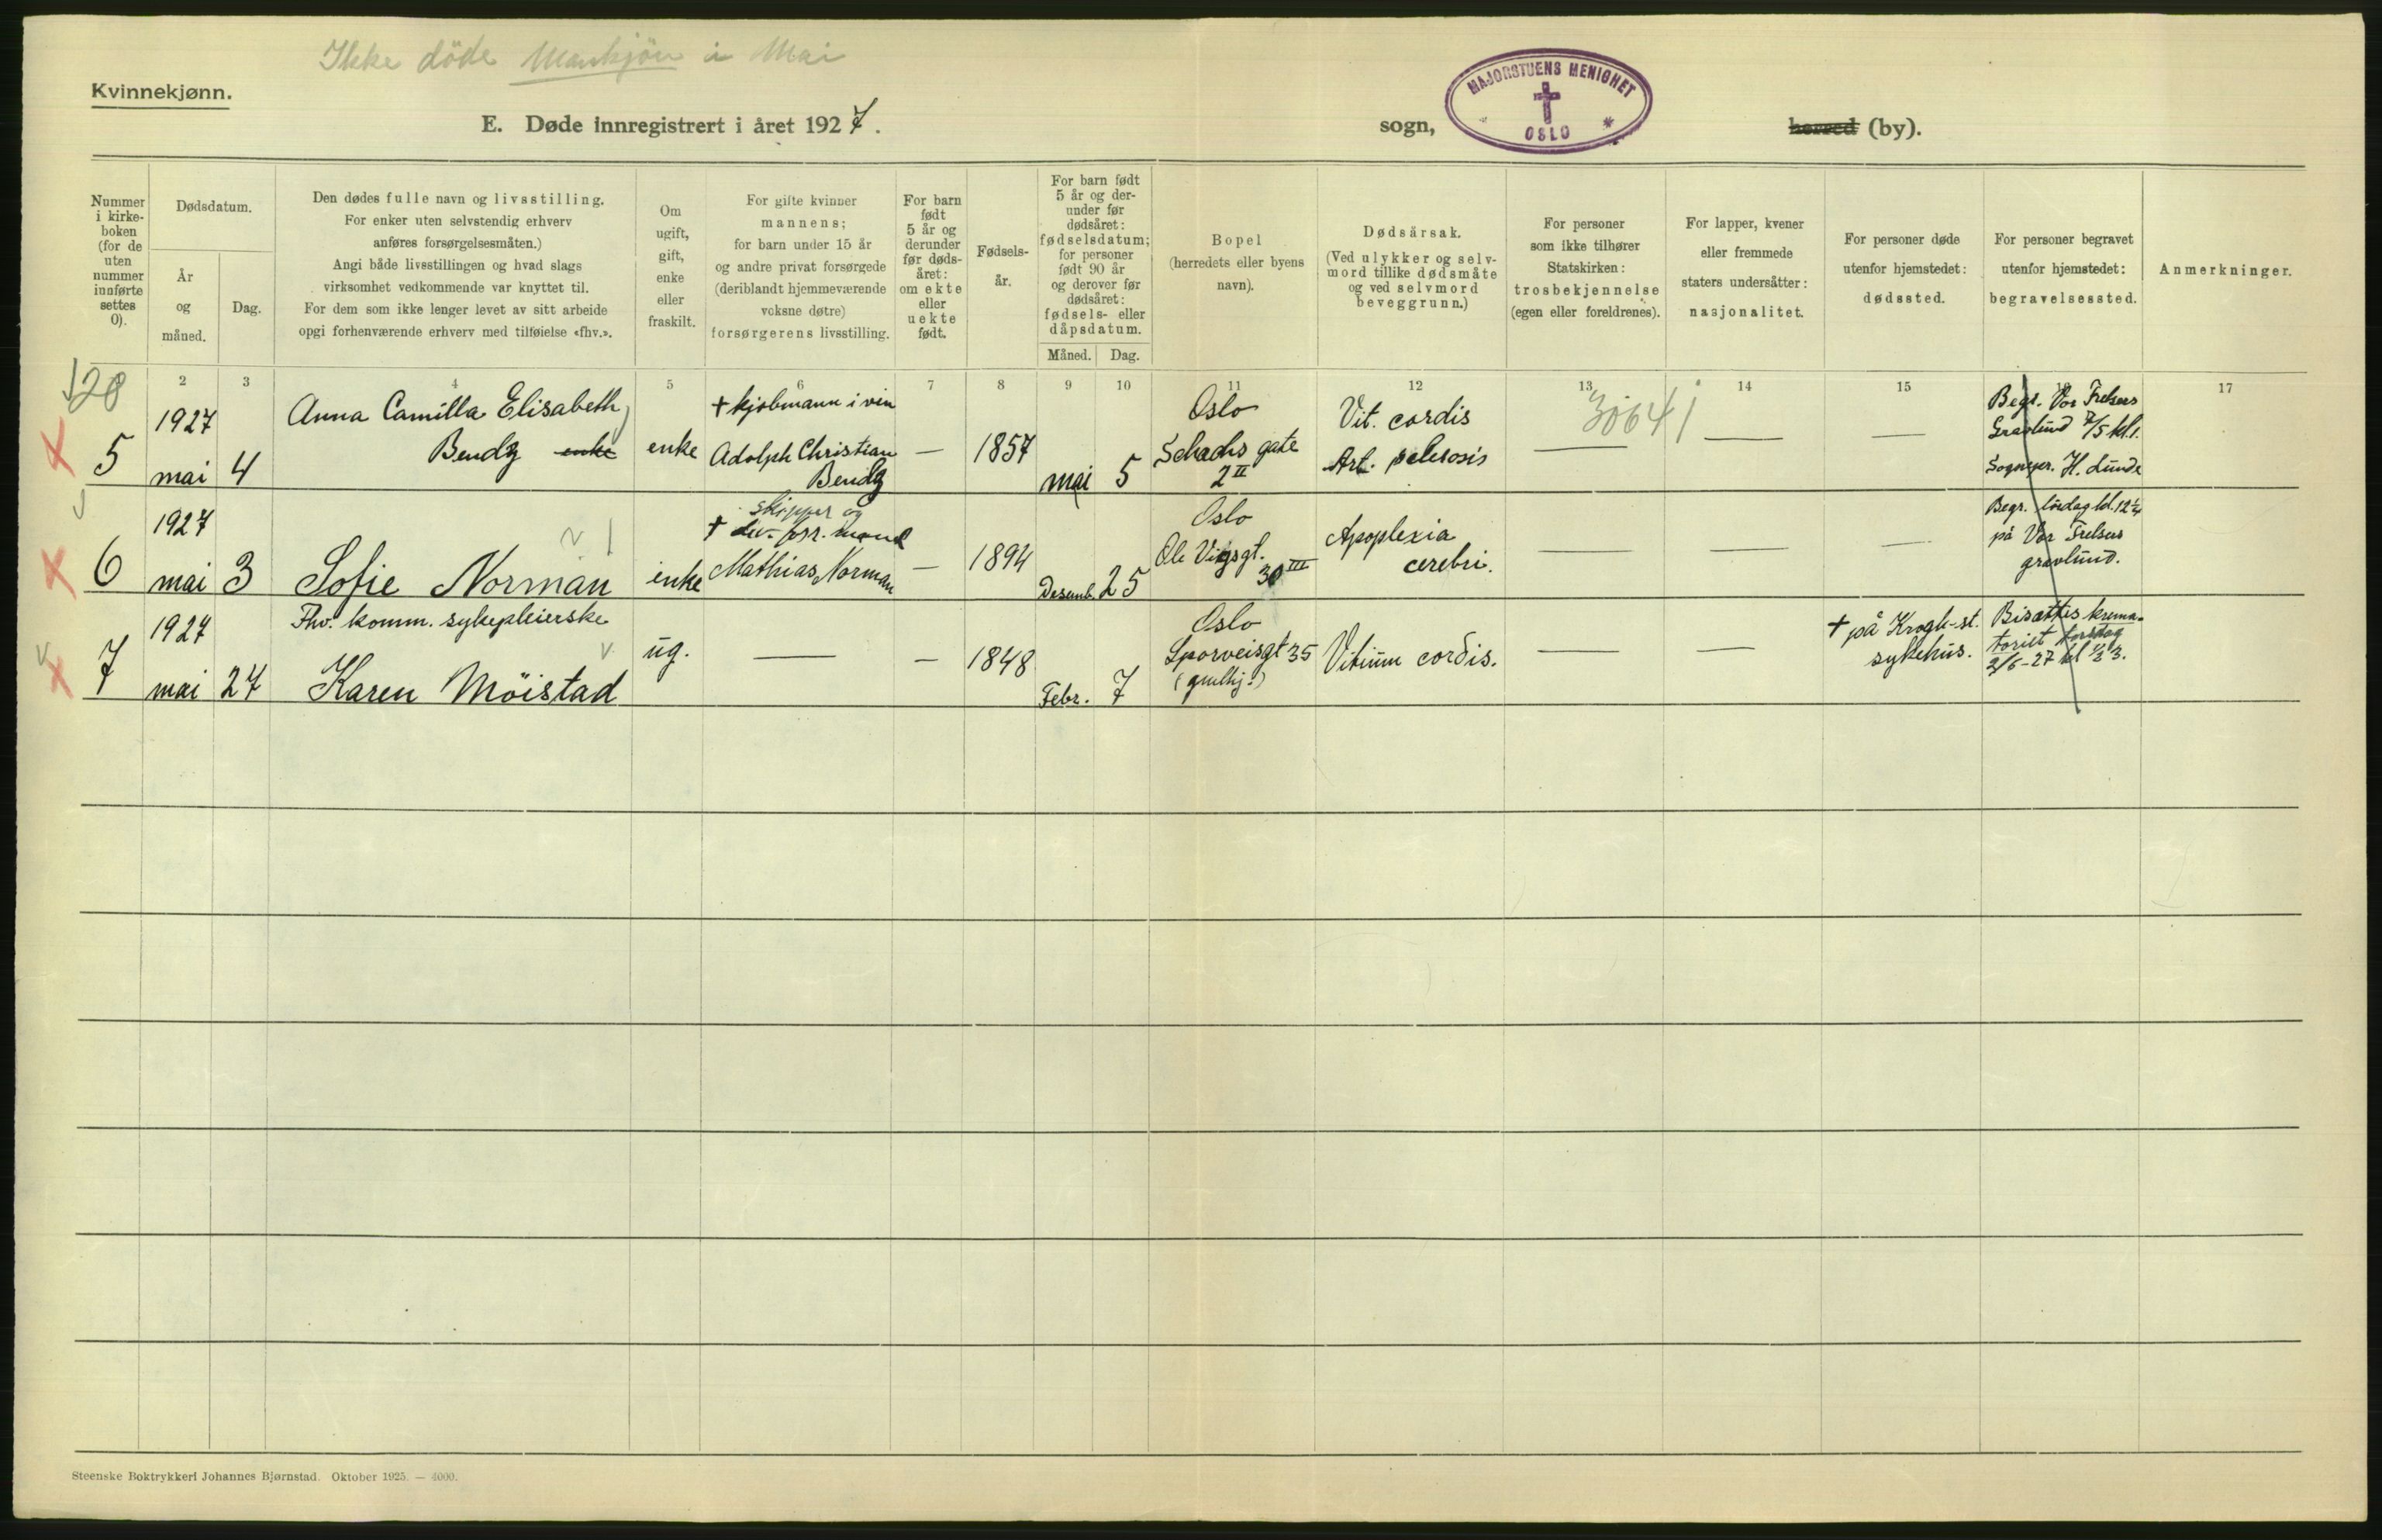 Ikke döde Mankjön i Mai
Kvinnekjønn.
E. Døde innregistrert i året 1927.
sogn,
MAJORSTUENS MENIGHET
OSLO
herred (by).
Nummer
i kirke-
boken
(for de
uten
nummer
innførte
settes
0).
Dødsdatum.
År
og
måned.
Dag.
Den dødes fulle navn og livsstilling.
For enker uten selvstendig erhverv
anføres forsørgelsesmåten.)
Angi både livsstillingen og hvad slags
virksomhet vedkommende var knyttet til.
For dem som ikke lenger levet av sitt arbeide
opgi forhenværende erhverv med tilføielse «fhv.».
Om
ugift,
gift,
enke
eller
fraskilt.
For gifte kvinner
mannens;
for barn under 15 år
og andre privat forsørgede
(deriblandt hjemmeværende
voksne døtre)
forsørgerens livsstilling.
For barn
født
5 år og
derunder
før døds-
året:
om ekte
eller
uekte
født.
Fødsels-
år.
For barn født
5 år og der-
under før
dødsåret:
fødselsdatum;
for personer
født 90 år
og derover før
dødsåret:
fødsels- eller
dåpsdatum.
Måned. Dag.
Bopel
(herredets eller byens
navn).
Dødsårsak.
(Ved ulykker og selv-
mord tillike dødsmåte
og ved selvmord
beveggrunn.)
For personer
som ikke tilhører
Statskirken:
trosbekjennelse
(egen eller foreldrenes).
For lapper, kvener
eller fremmede
staters undersåtter:
nasjonalitet.
For personer døde
utenfor hjemstedet:
dødssted.
For personer begravet
utenfor hjemstedet:
begravelsessted.
Anmerkninger.
2 3 4 5 6 7 8 9 10 11 12 13 14 15 16 17
128
5
1927
mai 4
Anna Camilla Elisabeth
Bendz enke
enke
+ kjøbmann i vin
Adolph Christian
Bendz
—
1857
mai 5
Oslo
Schachs gate
2 II
Vit. cordis
Art. sclerosis
30641
—
—
—
Begr. Vor Frelsers
Gravlund 7/5 kl. 1.
Sognepr. H. Lunde
6
1927
mai 3
Sofie Norman
enke
skipper og
Mathias Norman
—
1894
Desemb. 25
Oslo
Ole Vigsgt.
30 III
Apoplexia
cerebri.
—
—
—
Begr. lördag kl. 12¼
på Vor Frelsers
gravlund.
7
1927
mai 27
Fhv. komm. sykepleierske
Karen Möistad
ug.
—
—
1848
Febr. 7
Oslo
Sporveisgt 35
Vitium cordis.
—
—
+ på Krogh-st.
sykehus.
Bisættes krema-
toriet torsdag
2/6-27 kl ½3.
Steenske Boktrykkeri Johannes Bjørnstad. Oktober 1925. — 4000.